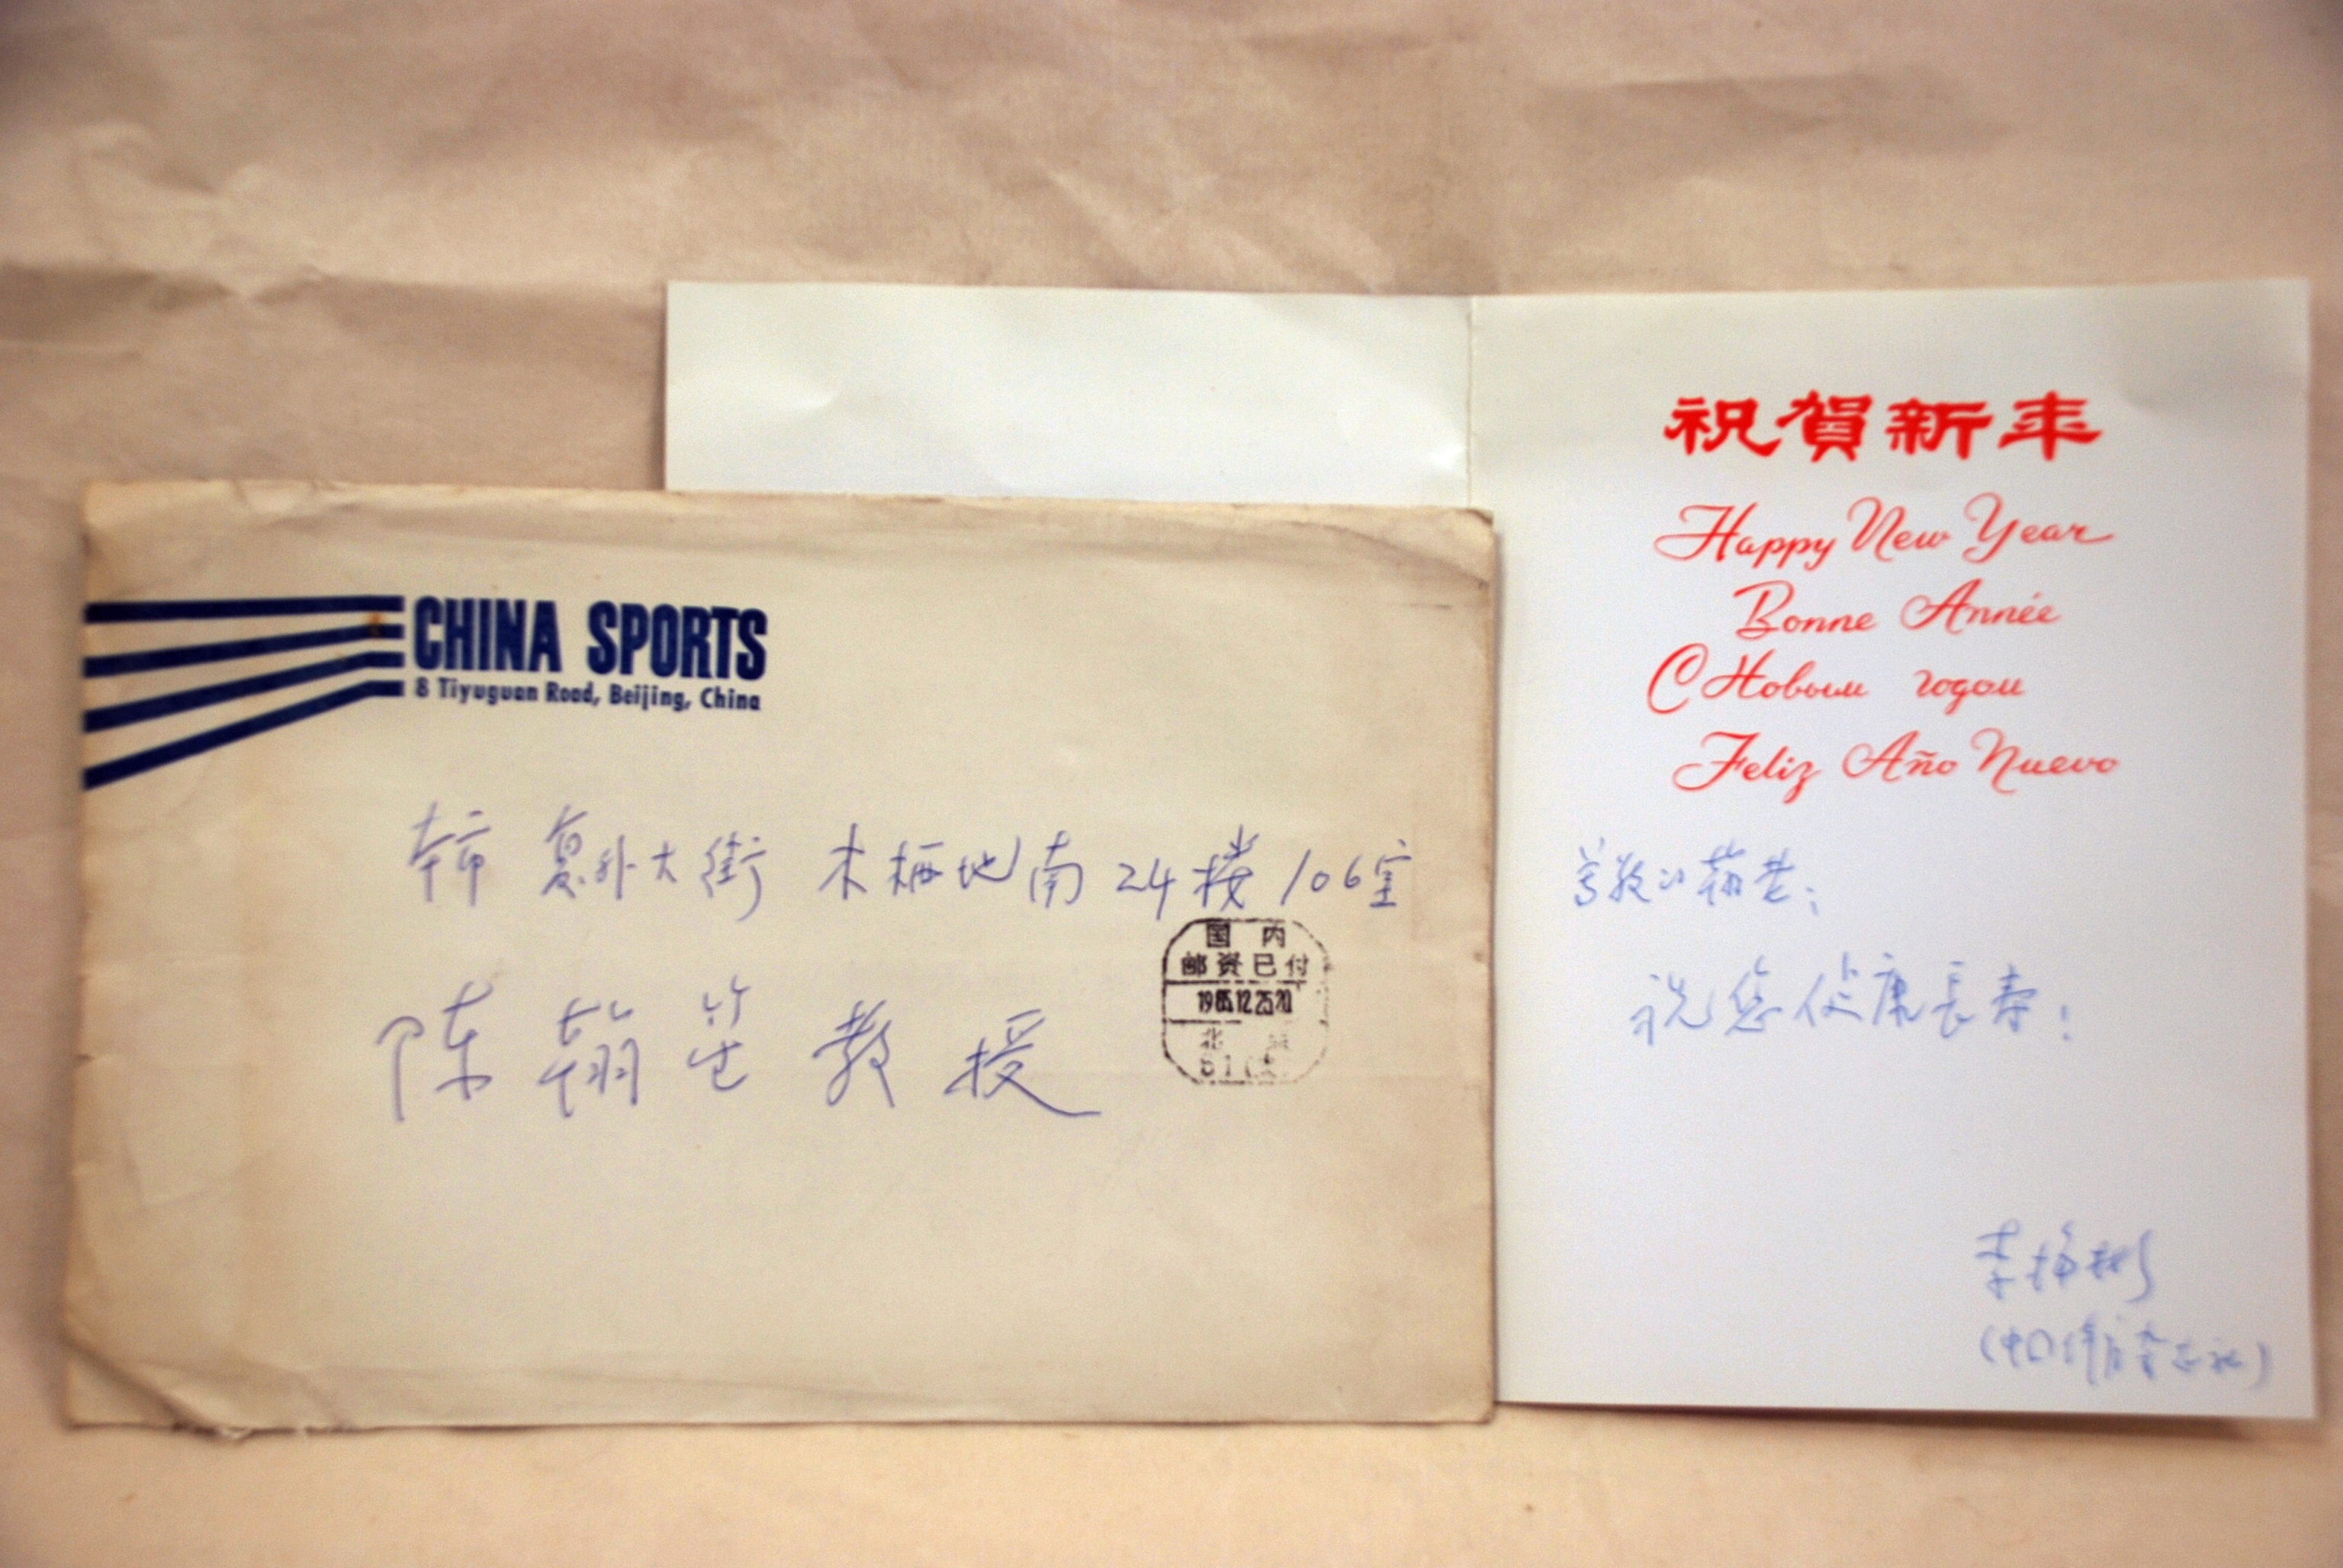 CHINA SPORTS
8 Tiyuguan Road, Beijing, China
本市 复外大街 木樨地南24楼106室
国 内
邮资已付
1985.12.25.20
北 京
陈翰笙教授
祝賀新年
Happy New Year
Bonne Année
С Новым годом
Feliz Año Nuevo
尊敬的翰老:
祝您健康長寿!